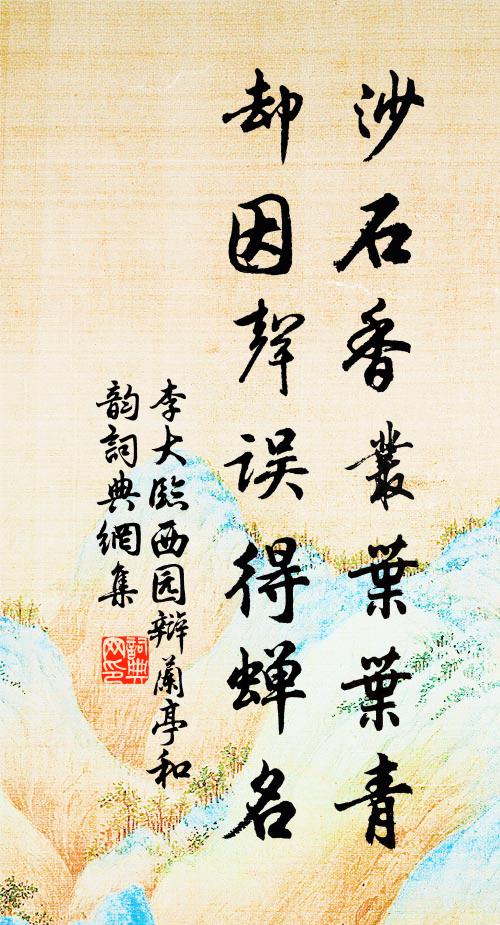 沙石香叢葉葉青
却因聲误得蝉名
李大臨西园辩蘭亭和
韵詞典網集
詞典网印